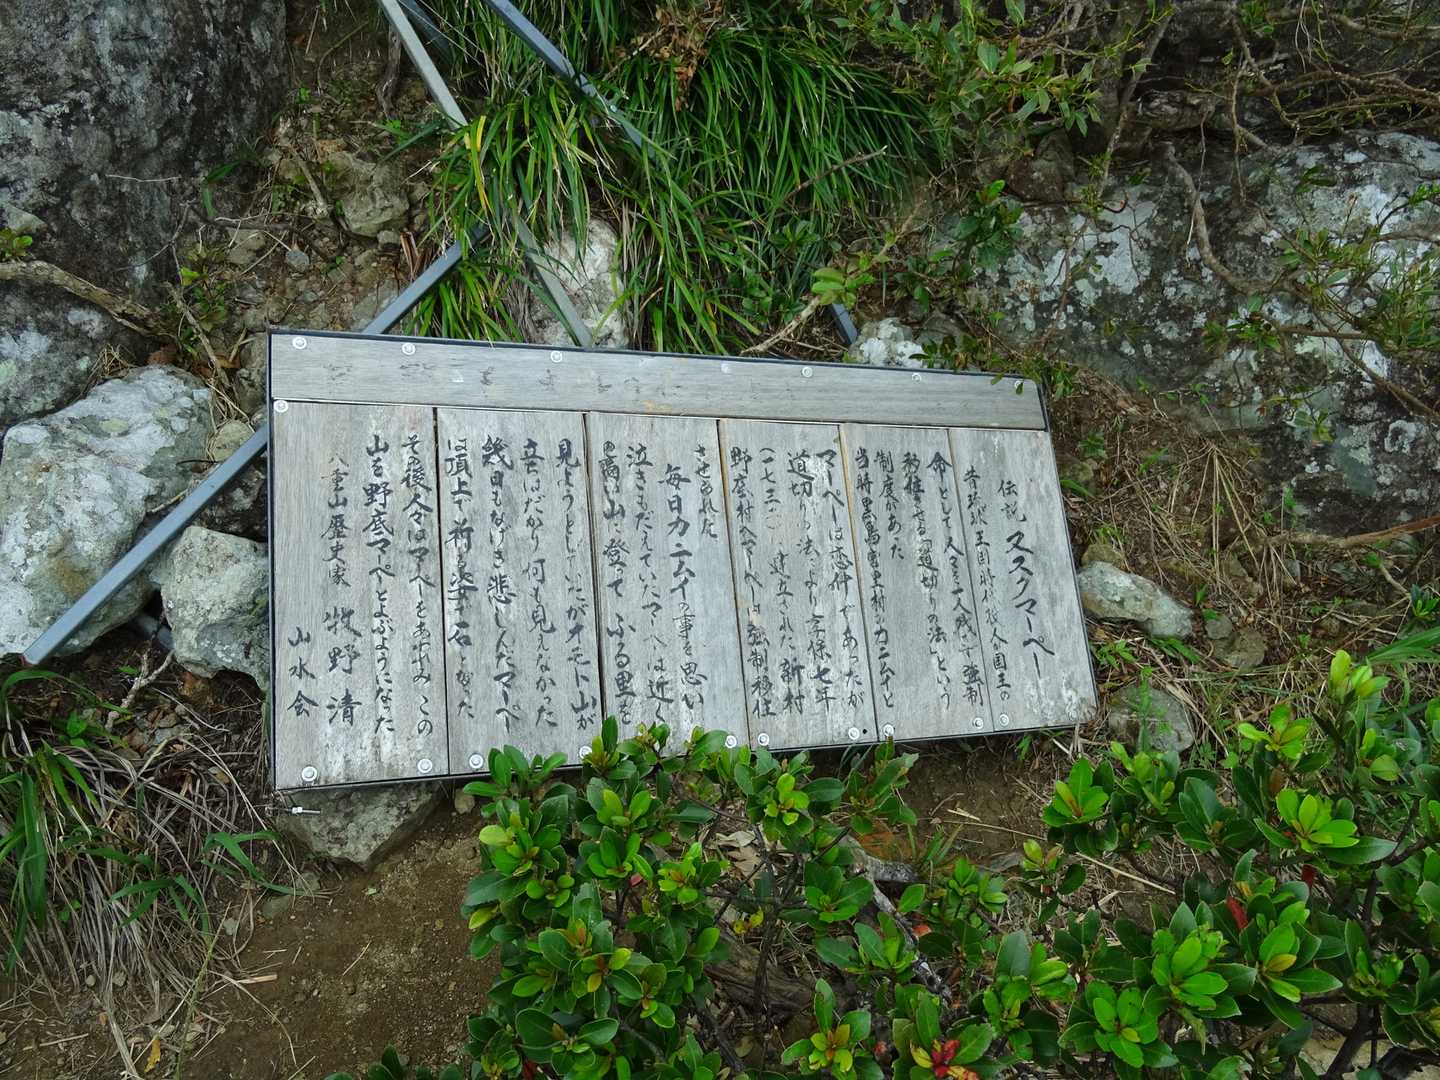 伝説 ヌスクマーペー
琉球王国時代役人が国王の
命として人々を一人残らず強制
移住させる「道切りの法」という
制度があった
当時黒島宮里村のカニムイと
マーペーは恋仲であったが
道切りの法により享保七年
(一七三二) 建立された新村
野底村へマーペーは強制移住
させられた
毎日カニムイの事を思い
泣きもだえていたマーペーは近く
の高い山に登って ふる里を
見ようとしていたがオモト山が
立ちはだかり 何も見えなかった
幾日もなげき悲しんだマーペー
は頂上で祈る姿で石となった
その後人々はマーペーをあわれみ この
山を野底マーペーとよぶようになった
八重山歴史家 牧野 清
山水会